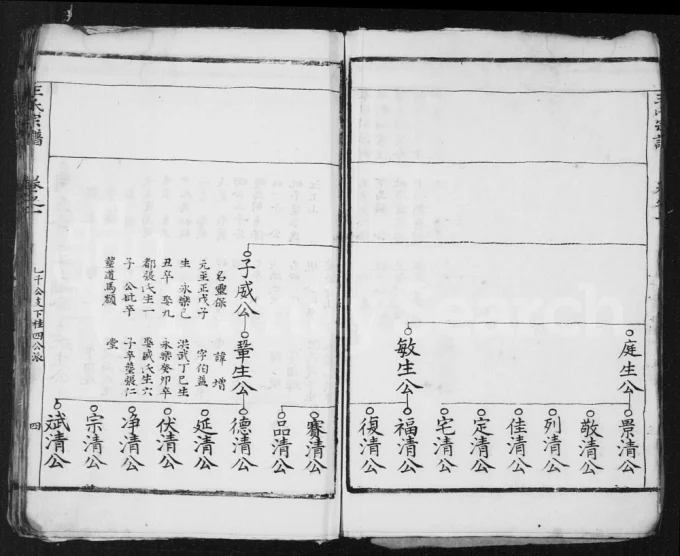 庭生公
景清公
敬清公
列清公
佳清公
定清公
宅清公
敏生公
福清公
復清公
賽清公
品清公
子威公
鞏生公
德清公
名靈保 諱增
元至正戊子 字伯益
生 洪武丁巳生
永樂己
丑卒 娶九 永樂癸卯卒
都張氏生一 娶臧氏生六
子 公妣卒 子卒葬張仁
葬道馬顙 堂
延清公
伏清公
净清公
宗清公
斌清公
王氏宗譜
卷之一
四